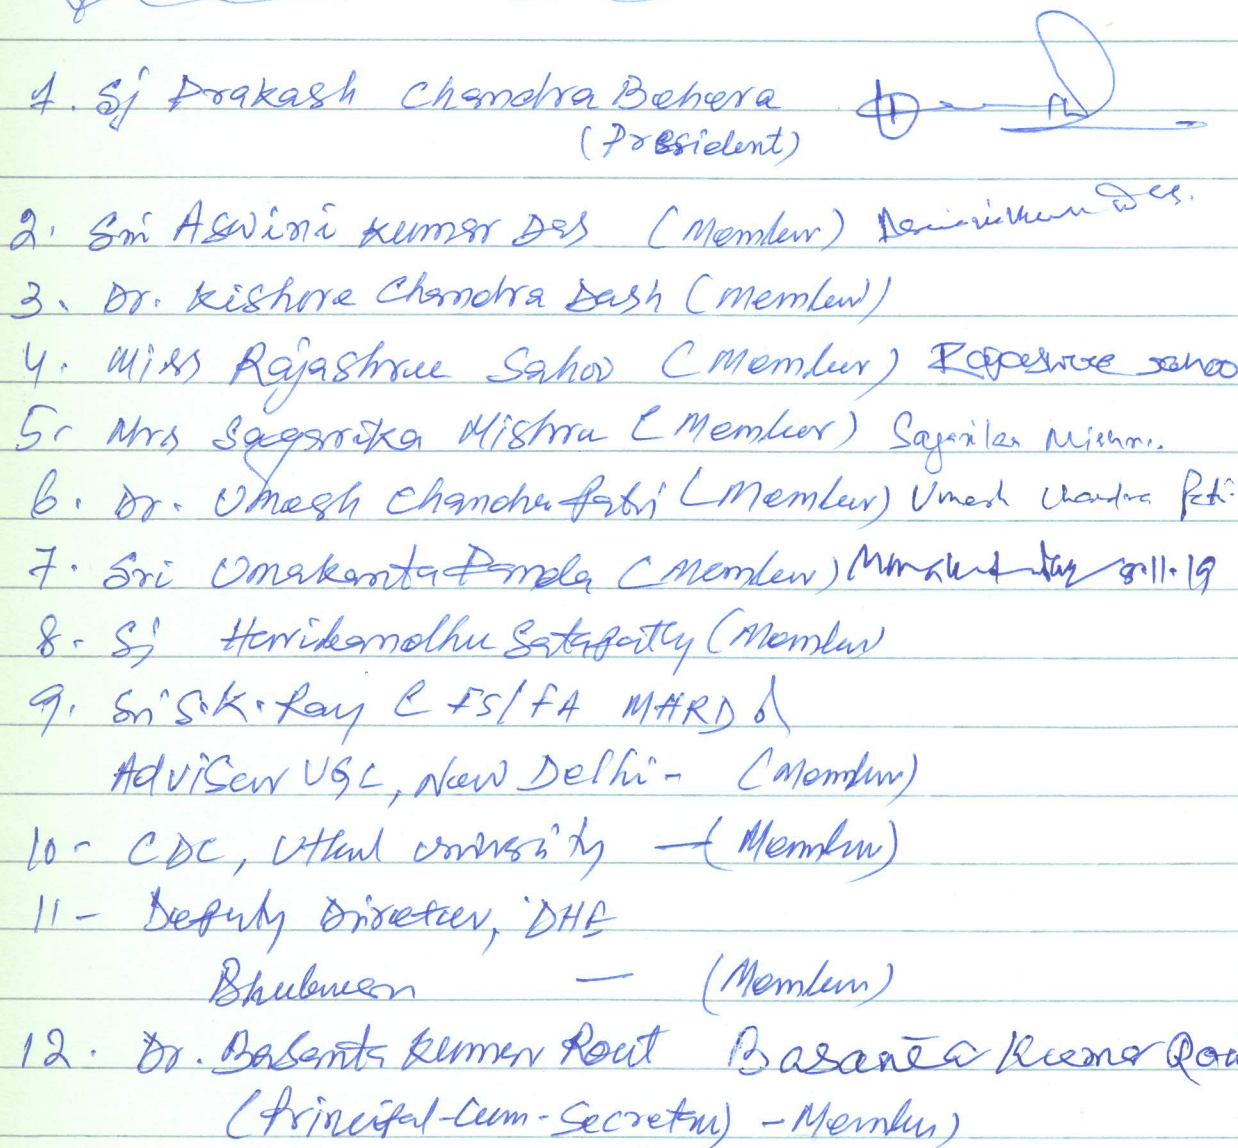 1. Sj Prakash Chandra Behera
(President)
2. Sri Aswini Kumar Das (Member) Aswini Kumar Das.
3. Dr. Kishore Chandra Dash (Member)
4. Miss Rajashree Sahoo (Member) Rajashree Sahoo
5. Mrs Sagarika Mishra (Member) Sagarika Mishra.
6. Dr. Umesh Chandra Patri (Member) Umesh Chandra Pati
7. Sri Umakanta Panda (Member) 8.11.19
8. Sj Haribandhu Satapathy (Member
9. Sri S.K. Ray (FS/FA MHRD
Adviser UGC, New Delhi - (Member)
10 - CDC, Utkal University - (Member)
11 - Deputy Director, DHE
- (Member)
12. Dr. Basanta Kumar Rout Basanta Kumar Rou
(Principal-Cum-Secretary) - Member)